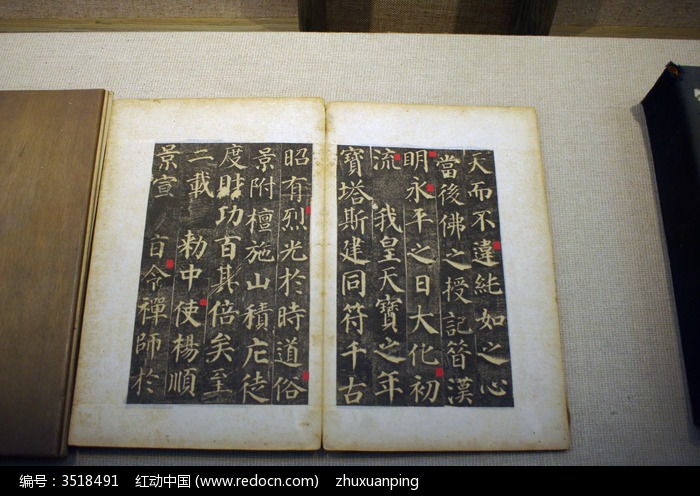 天而不違純如之心
當後佛之授記昔漢
明永平之日大化初
流 我皇天寶之年
寶塔斯建同符千古
昭有烈光於時道俗
景附檀施山積庀徒
度財功百其倍矣至
二載 勅中使楊順
景宣 旨令禪師於
编号：3518491 红动中国 (www.redocn.com) zhuxuanping